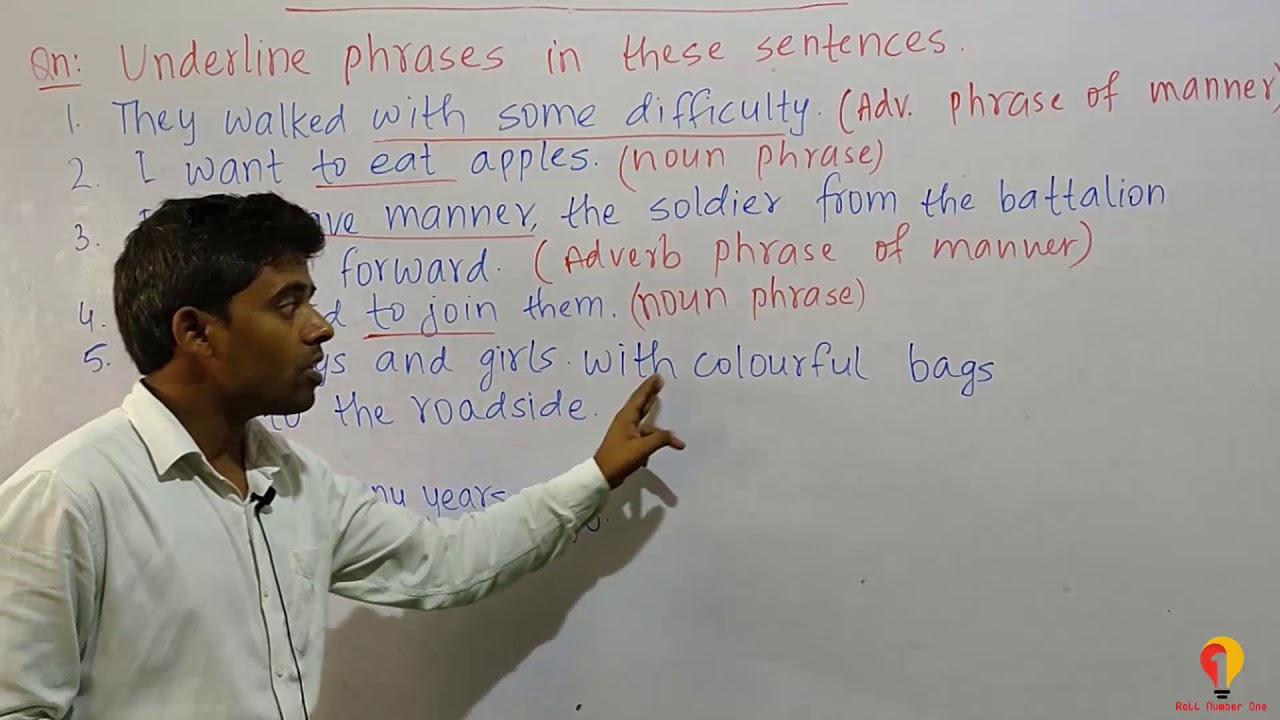 Qn: Underline phrases in these sentences.
1. They walked with some difficulty. (Adv. phrase of manner)
2. I want to eat apples. (noun phrase)
3. manner, the soldier from the battalion
forward. (Adverb phrase of manner)
4. to join them. (noun phrase)
5. and girls with colourful bags
to the roadside.
years
Roll Number One